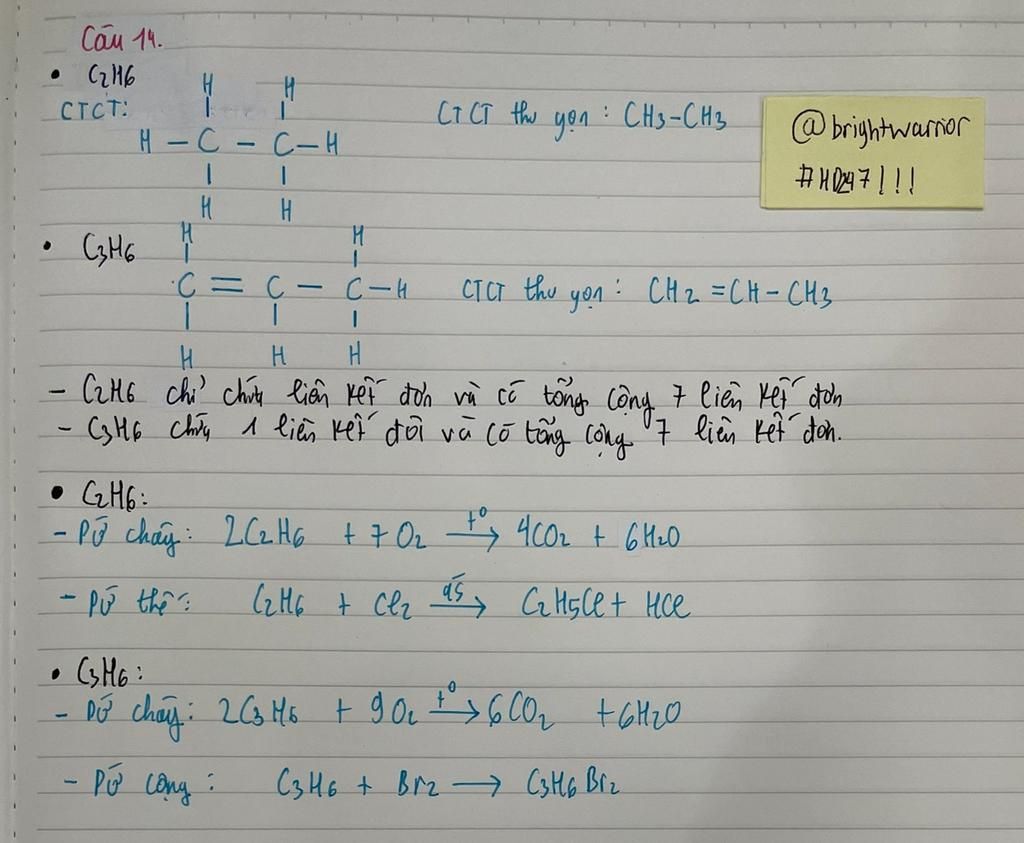 Câu 14.
• C2H6
CTCT:
H H
H – C – C – H
H H
CTCT thu gọn : CH3–CH3
@brightwarrior
#HD247!!!
• C3H6
H H
C = C – C – H
H H H
CTCT thu gọn : CH2 = CH – CH3
– C2H6 chỉ chứa liên kết đơn và có tổng cộng 7 liên kết đơn
– C3H6 chứa 1 liên kết đôi và có tổng cộng 7 liên kết đơn.
• C2H6:
– PƯ cháy: 2C2H6 + 7O2 –t°→ 4CO2 + 6H2O
– PƯ thế: C2H6 + Cl2 –as→ C2H5Cl + HCl
• C3H6:
– PƯ cháy: 2C3H6 + 9O2 –t°→ 6CO2 + 6H2O
– PƯ cộng : C3H6 + Br2 → C3H6Br2